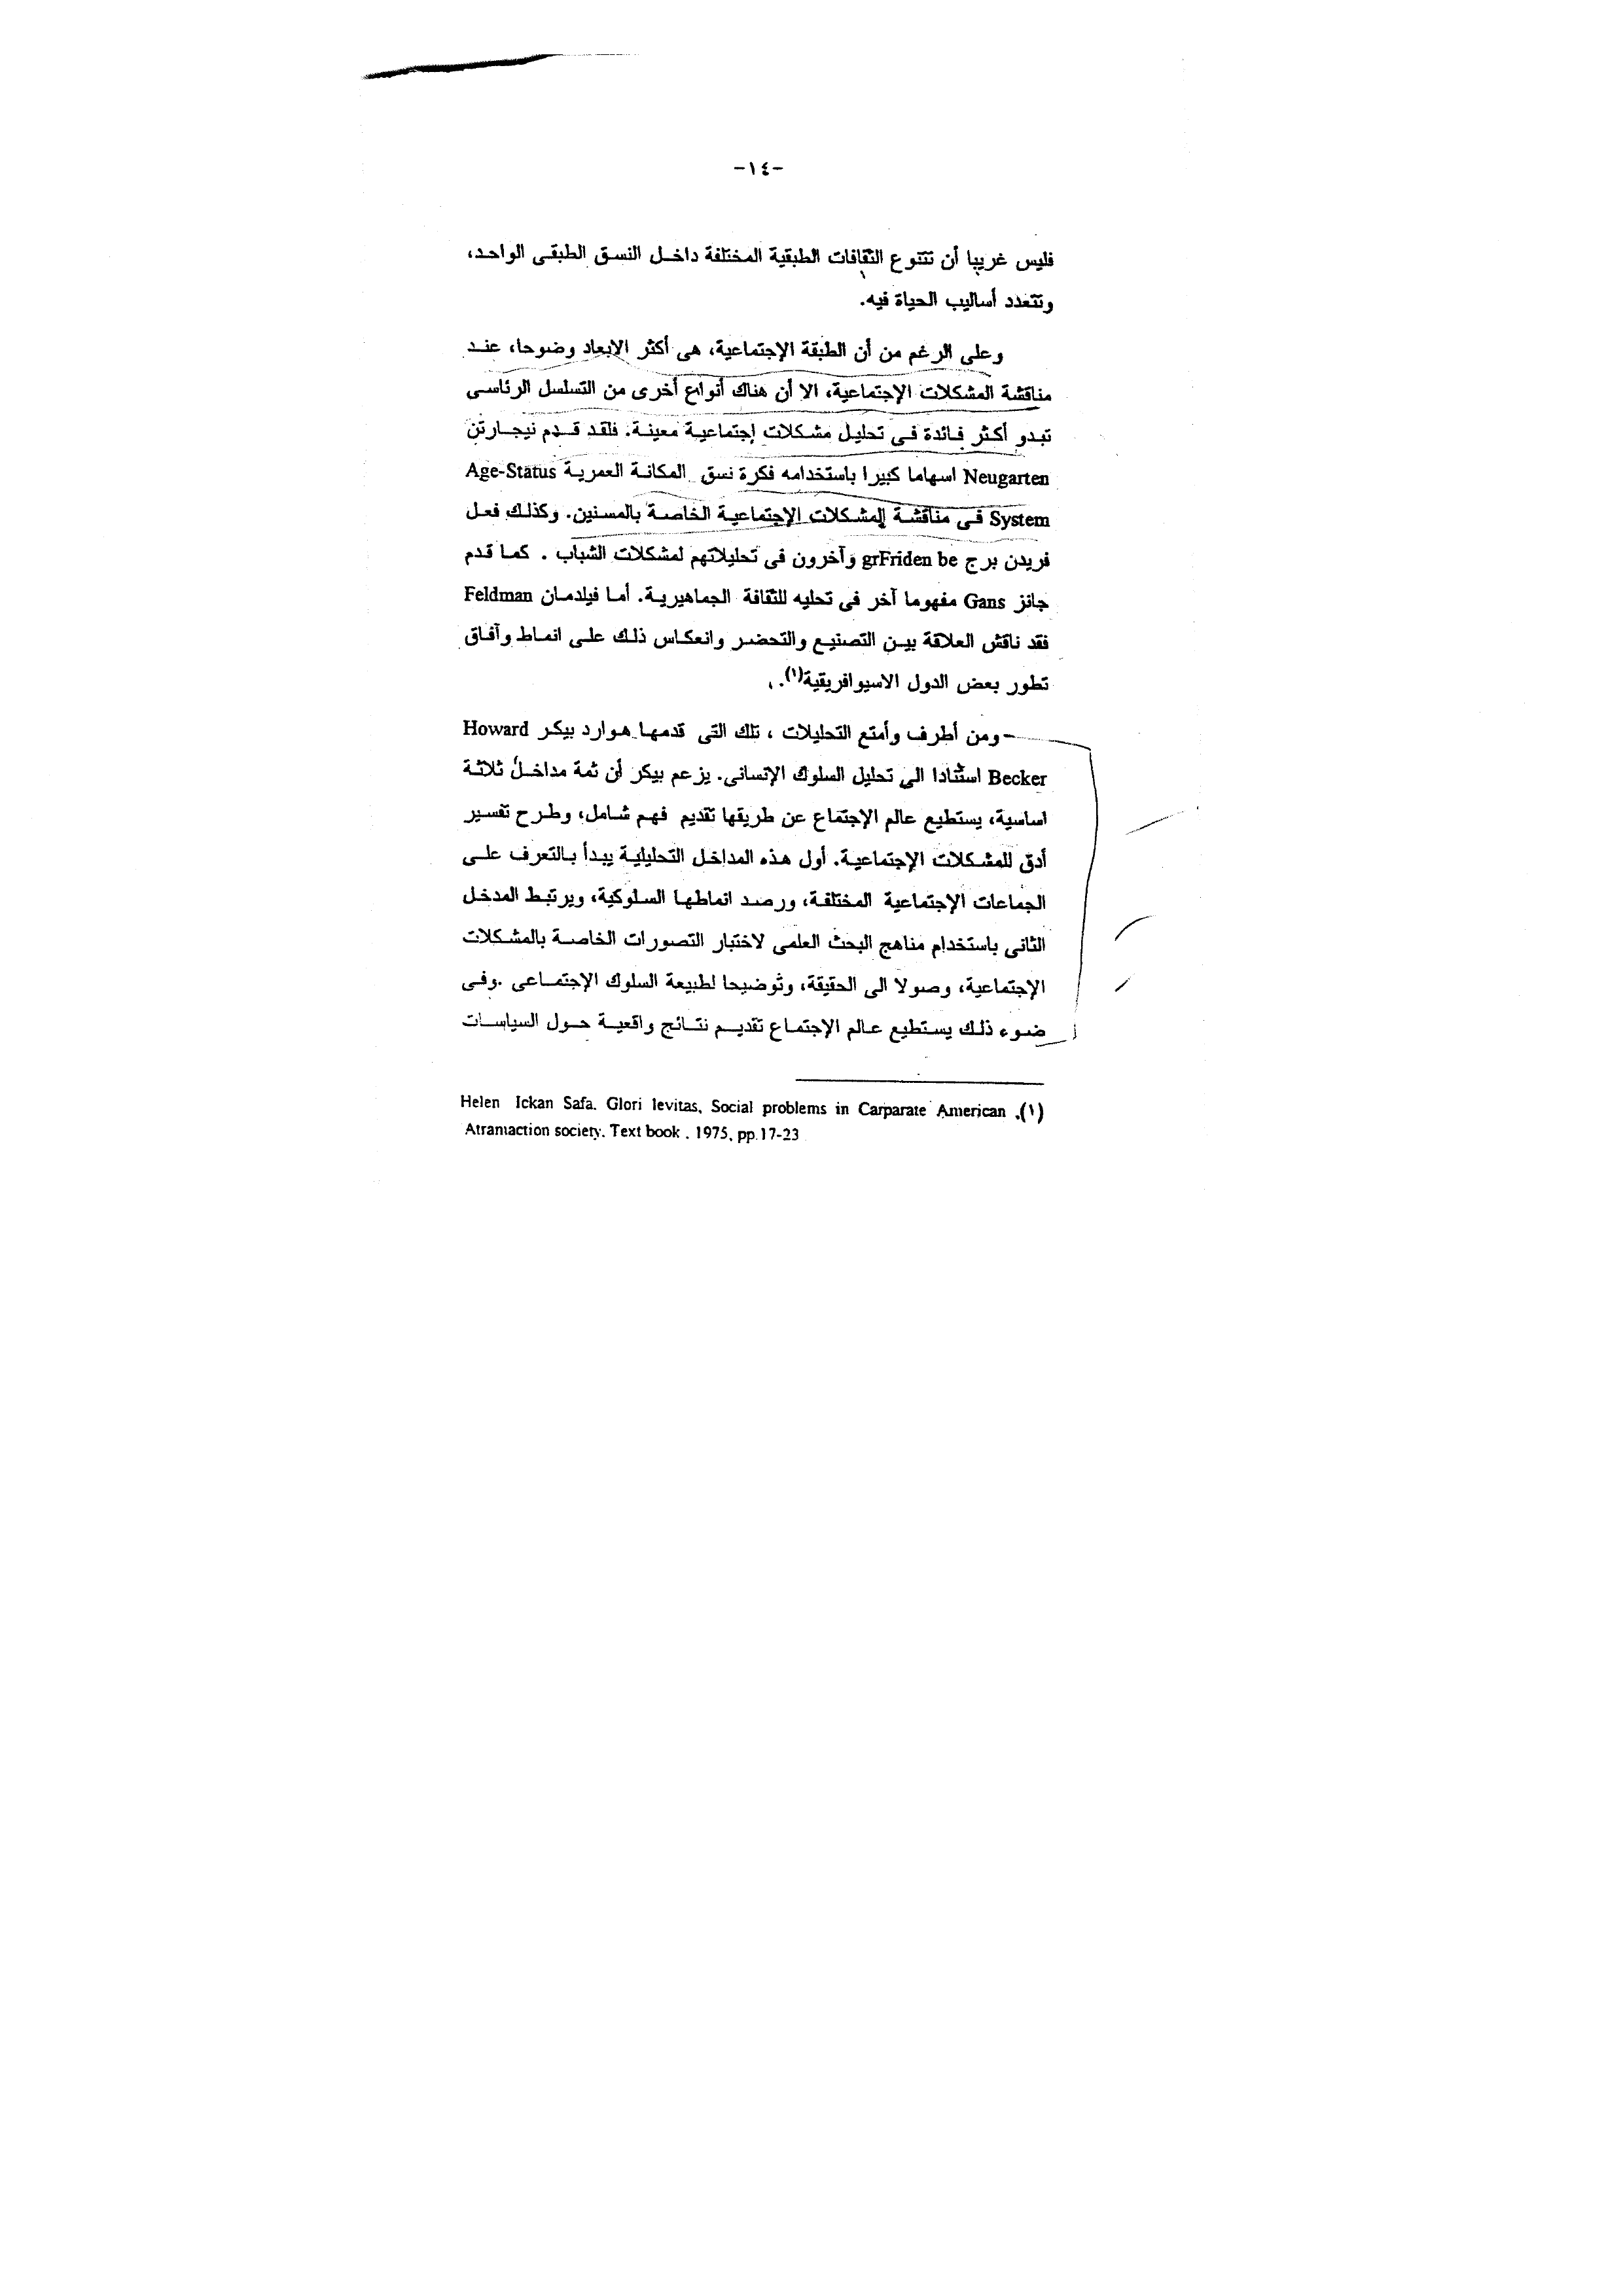 -١٤-
فليس غريبا أن تتنوع الثقافات الطبقية المختلفة داخل النسق الطبقى الواحد،
وتتعدد أساليب الحياة فيه.
وعلى الرغم من أن الطبقة الإجتماعية، هى أكثر الابعاد وضوحا، عند
مناقشة المشكلات الإجتماعية، الا أن هناك أنواع أخرى من التسلسل الرئاسى
تبدو أكثر فائدة فى تحليل مشكلات إجتماعية معينة. فلقد قدم نيجارتن
Neugarten اسهاما كبيرا باستخدامه فكرة نسق المكانة العمرية Age-Status
System فى مناقشة المشكلات الإجتماعية الخاصة بالمسنين. وكذلك فعل
فريدن برج grFriden be وآخرون فى تحليلاتهم لمشكلات الشباب . كما قدم
جانز Gans مفهوما آخر فى تحليه للثقافة الجماهيرية. أما فيلدمان Feldman
فقد ناقش العلاقة بين التصنيع والتحضر وانعكاس ذلك على انماط وآفاق
تطور بعض الدول الاسيوافريقية(١).
-ومن أطرف وأمتع التحليلات ، تلك التى قدمها هوارد بيكر Howard
Becker استنادا الى تحليل السلوك الإنسانى. يزعم بيكر أن ثمة مداخل ثلاثة
اساسية، يستطيع عالم الإجتماع عن طريقها تقديم فهم شامل، وطرح تفسير
أدق للمشكلات الإجتماعية. أول هذه المداخل التحليلية يبدأ بالتعرف على
الجماعات الإجتماعية المختلفة، ورصد انماطها السلوكية، ويرتبط المدخل
الثانى باستخدام مناهج البحث العلمى لاختبار التصورات الخاصة بالمشكلات
الإجتماعية، وصولا الى الحقيقة، وتوضيحا لطبيعة السلوك الإجتماعى .وفى
ضوء ذلك يستطيع عالم الإجتماع تقديم نتائج واقعية حول السياسات
Helen Ickan Safa. Glori levitas, Social problems in Carparate American .(١)
Atramaction society. Text book . 1975, pp.17-23